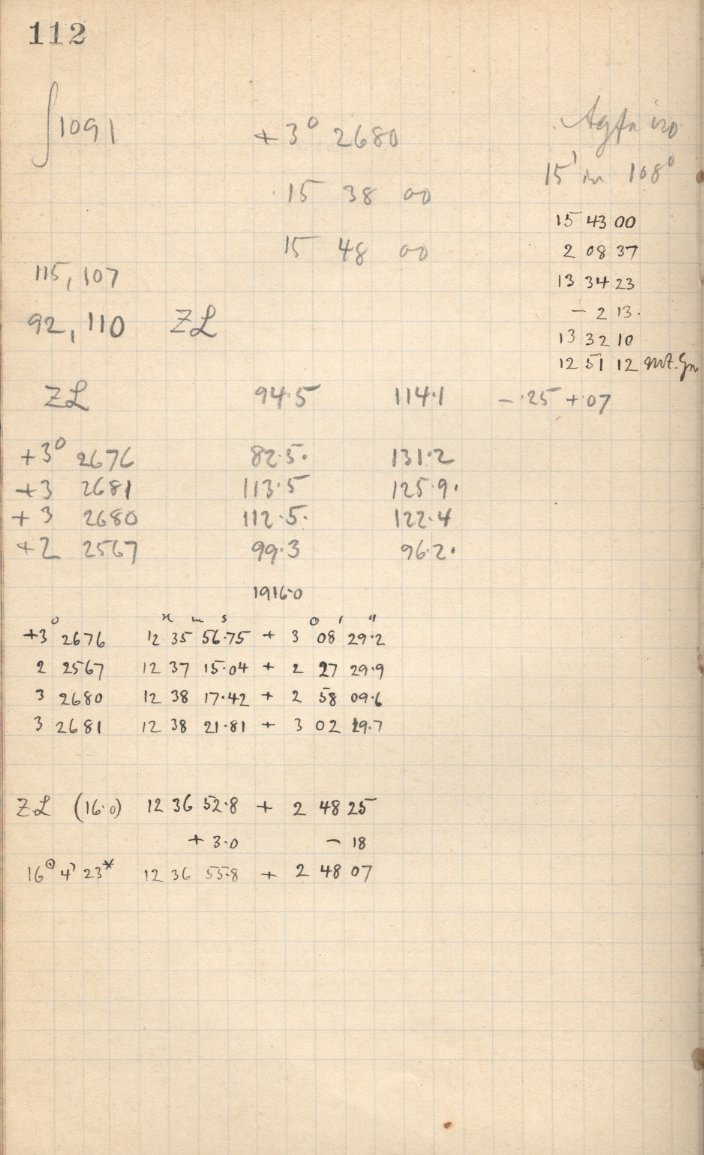 112
∫1091 +3° 2680
15 38 00
15 48 00
Agfa iso
15' in 108°
15 43 00
2 08 37
13 34 23
- 2 13.
13 32 10
12 51 12 M.T. Gr.
115, 107
92, 110 ZL
ZL 94.5 114.1 -.25 +.07
+3° 2676 82.5. 131.2
+3 2681 113.5 125.9.
+3 2680 112.5. 122.4
+2 2567 99.3 96.2.
1916.0
h m s ° ' "
+3° 2676 12 35 56.75 + 3 08 29.2
2 2567 12 37 15.04 + 2 27 29.9
3 2680 12 38 17.42 + 2 58 09.6
3 2681 12 38 21.81 + 3 02 29.7
ZL (16.0) 12 36 52.8 + 2 48 25
+ 3.0 - 18
12 36 55.8 + 2 48 07